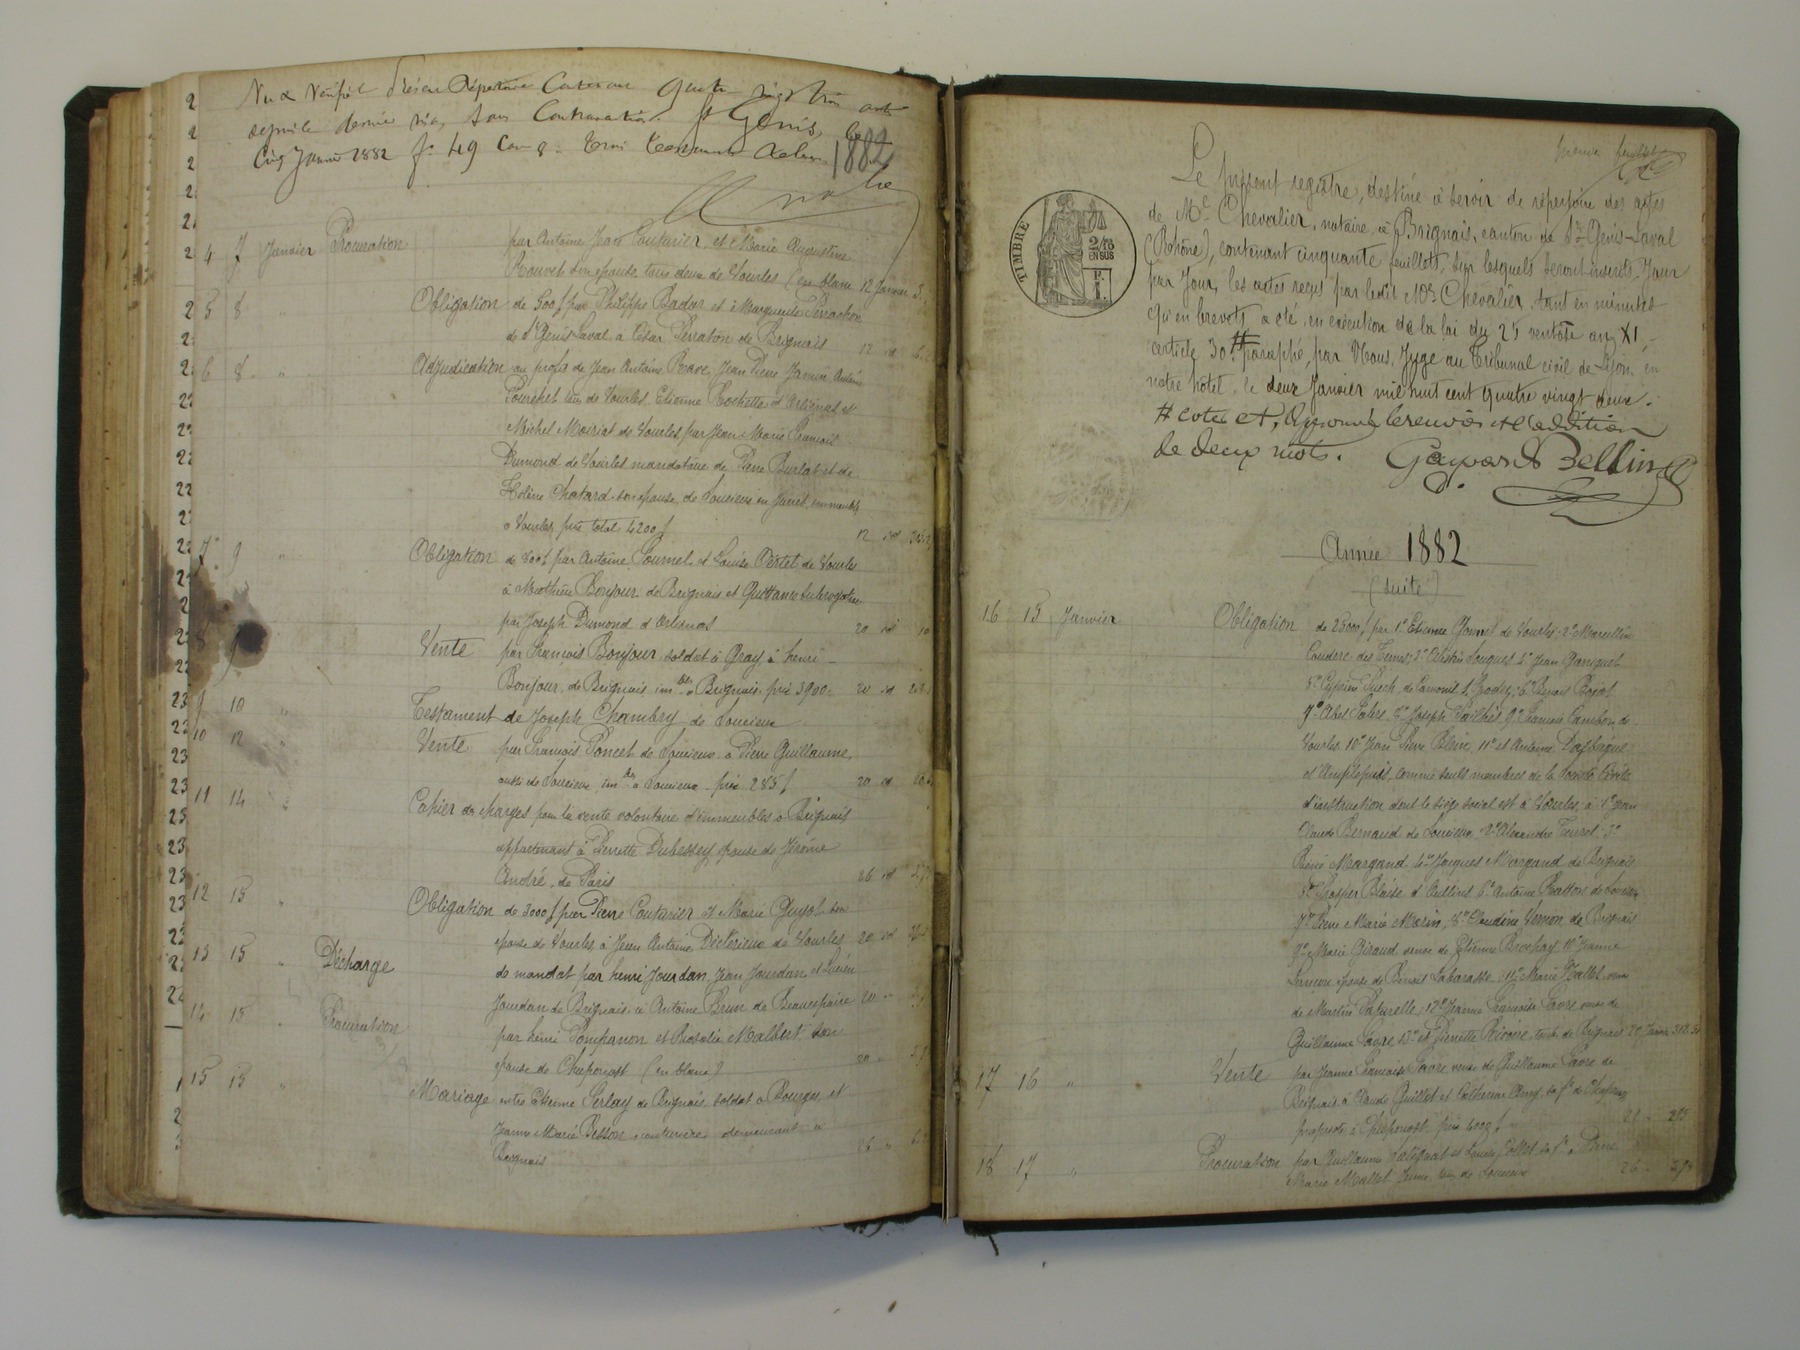 Vu & Vérifié le Répertoire Contenant quatre vingt trois actes
depuis le dernier visa, sans Contravention. St Genis, le
Cinq Janvier 1882 f° 49 Case 8
1882
4 7 Janvier Procuration par Antoine Jean Couturier et Marie Augustine
Rouvet son épouse tous deux de Vourles (en blanc 12 Janvier 3
5 8 " Obligation de 500 f par Philippe Badar et à Marguerite Perrachon
de St Genis Laval à César Perraton de Brignais 12 id
6 8 " Adjudication au profit de Jean Antoine Jean Pierre Jamin Antoine
Pourchet tous de Vourles, Etienne Rochette d'Orliénas et
Michel Moiriat de Vourles, par Jean Marie François
Dumond de Vourles mandataire de Pierre Burlat et de
Hélène Chatard son épouse, de Soucieu en Jarret, immeuble
à Vourles, prix total 4200 f 12 id
7 9 " Obligation de 800 f par Antoine Fournel et Louise Pertet de Vourles
à Matthieu Bonjour de Brignais et Quittance subrogative
par Joseph Dumond d'Orliénas 20 id 10
8 9 Vente par François Bonjour, soldat à Gray à henri
Bonjour, de Brignais imbles à Brignais, prix 3900 20 id
9 10 " Testament de Joseph Chambry de Soucieu
10 12 " Vente par François Poncet de Soucieu à Pierre Guillaume,
aussi de Soucieu, imbles à Soucieu prix 285 f 20 id
11 14 " Cahier des charges pour la vente volontaire d'immeubles à Brignais
appartenant à Pierrette Dubessey épouse de Jérôme
André, de Paris 26 id
12 15 " Obligation de 3000 f par Pierre Couturier et Marie Guyot son
épouse de Vourles à Jean Antoine Décterieux de Vourles 20 id
13 15 " Décharge de mandat par henri Jourdan, Jean Jourdan et Lucien
Jourdan de Brignais à Antoine Brun de Beaurepaire 20 "
14 15 " Procuration par henri Pomparon et Rosalie Malbert son
épouse de Chaponost (en blanc) 20 "
15 15 " Mariage entre Etienne Serlay de Brignais soldat à Bourges et
Jeanne Marie Besson, couturière demeurant à
Brignais 26 "
premier feuillet
Le présent registre, destiné à servir de répertoire des actes
de Me Chevalier, notaire, à Brignais, canton de St Genis-Laval
(Rhône), contenant cinquante feuillets, sur lesquels seront inscrits, Jour
par Jour, les actes reçus par ledit Me Chevalier, tant en minutes
qu'en brevets, a été, en exécution de la loi du 25 ventôse an XI,
article 30, # paraphé, par Nous, Juge au Tribunal civil de Lyon, en
notre hôtel, le deux Janvier mil huit cent quatre vingt deux.
# coté et, Approuvé le renvoi et l'addition
de deux mots. Gaspard Bellin
TIMBRE
2/10
EN SUS
Année 1882
(suite)
16 15 Janvier Obligation de 25000 f par 1° Etienne Gonnet de Vourles, 2° Marcellin
Couderc des Ternes; 3° Célestin Fouques 4° Jean Ganiguet
5° Cyprien Puech, de Lamonil 6° Benoit Bogot
7° Abel Salers 8° Joseph Sailhès 9° François Cambon de
Vourles 10° Jean Pierre Blein, 11° et Antoine
d'Amplepuis, comme seuls membres de la Société Civile
d'instruction dont le siège social est à Vourles, à 1° Jean
Claude Bernand de Soucieu, 2° Alexandre 3°
René Margand 4° Jacques Margand de Brignais
5° Gaspar Blaise d'Oullins 6° Antoine Ratton de Soucieu
7° Pierre Marie Marin, 8° Claudine Vernon de Brignais
9° Marie Giraud veuve de Etienne Brochay 10° Jeanne
épouse de Benoit Labarasse 11° Marie Mallet veuve
de Martin 12° Jeanne Françoise Favre veuve de
Guillaume Favre 13° et Pierrette tous de Brignais 20 Janvier 312.50
17 16 " Vente par Jeanne Françoise Favre veuve de Guillaume Favre de
Brignais, à Claude Guillot et Catherine sa fe de Chaponost
propriété à Chaponost prix 4000 f
18 17 " Procuration par Guillaume et Louise Collet sa fe à Pierre
Marie Mallet tous de Soucieu 26 "